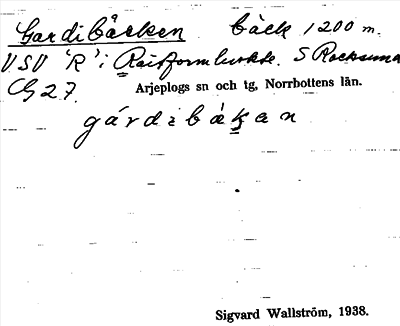 Gardibäcken bäck 1200 m.
VSV 'R' i Raisjformluokte. S Rocksuma
G 27. Arjeplogs sn och tg, Norrbottens län.
gárdibäkan
Sigvard Wallström, 1938.